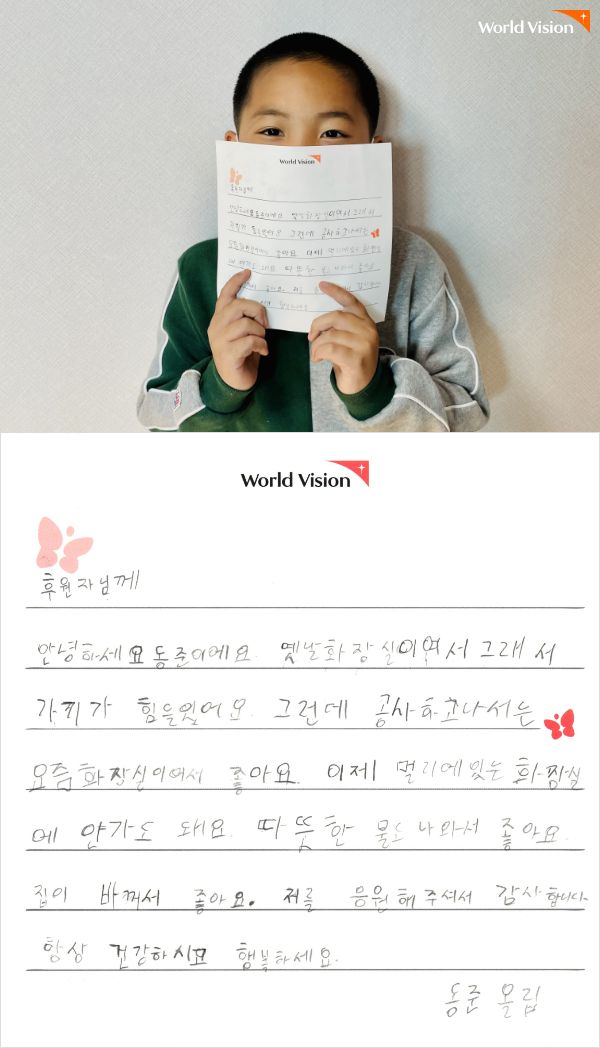 World Vision
World Vision
World Vision
후원자님께
안녕하세요 동준이에요. 옛날화장실이여서 그래서
가기가 힘들었어요. 그런데 공사하고나서는
요즘화장실이어서 좋아요. 이제 멀리에있는 화장실
에 안가도 돼요. 따뜻한 물도 나와서 좋아요.
집이 바껴서 좋아요. 저를 응원해주셔서 감사합니다.
항상 건강하시고 행복하세요.
동준 올림